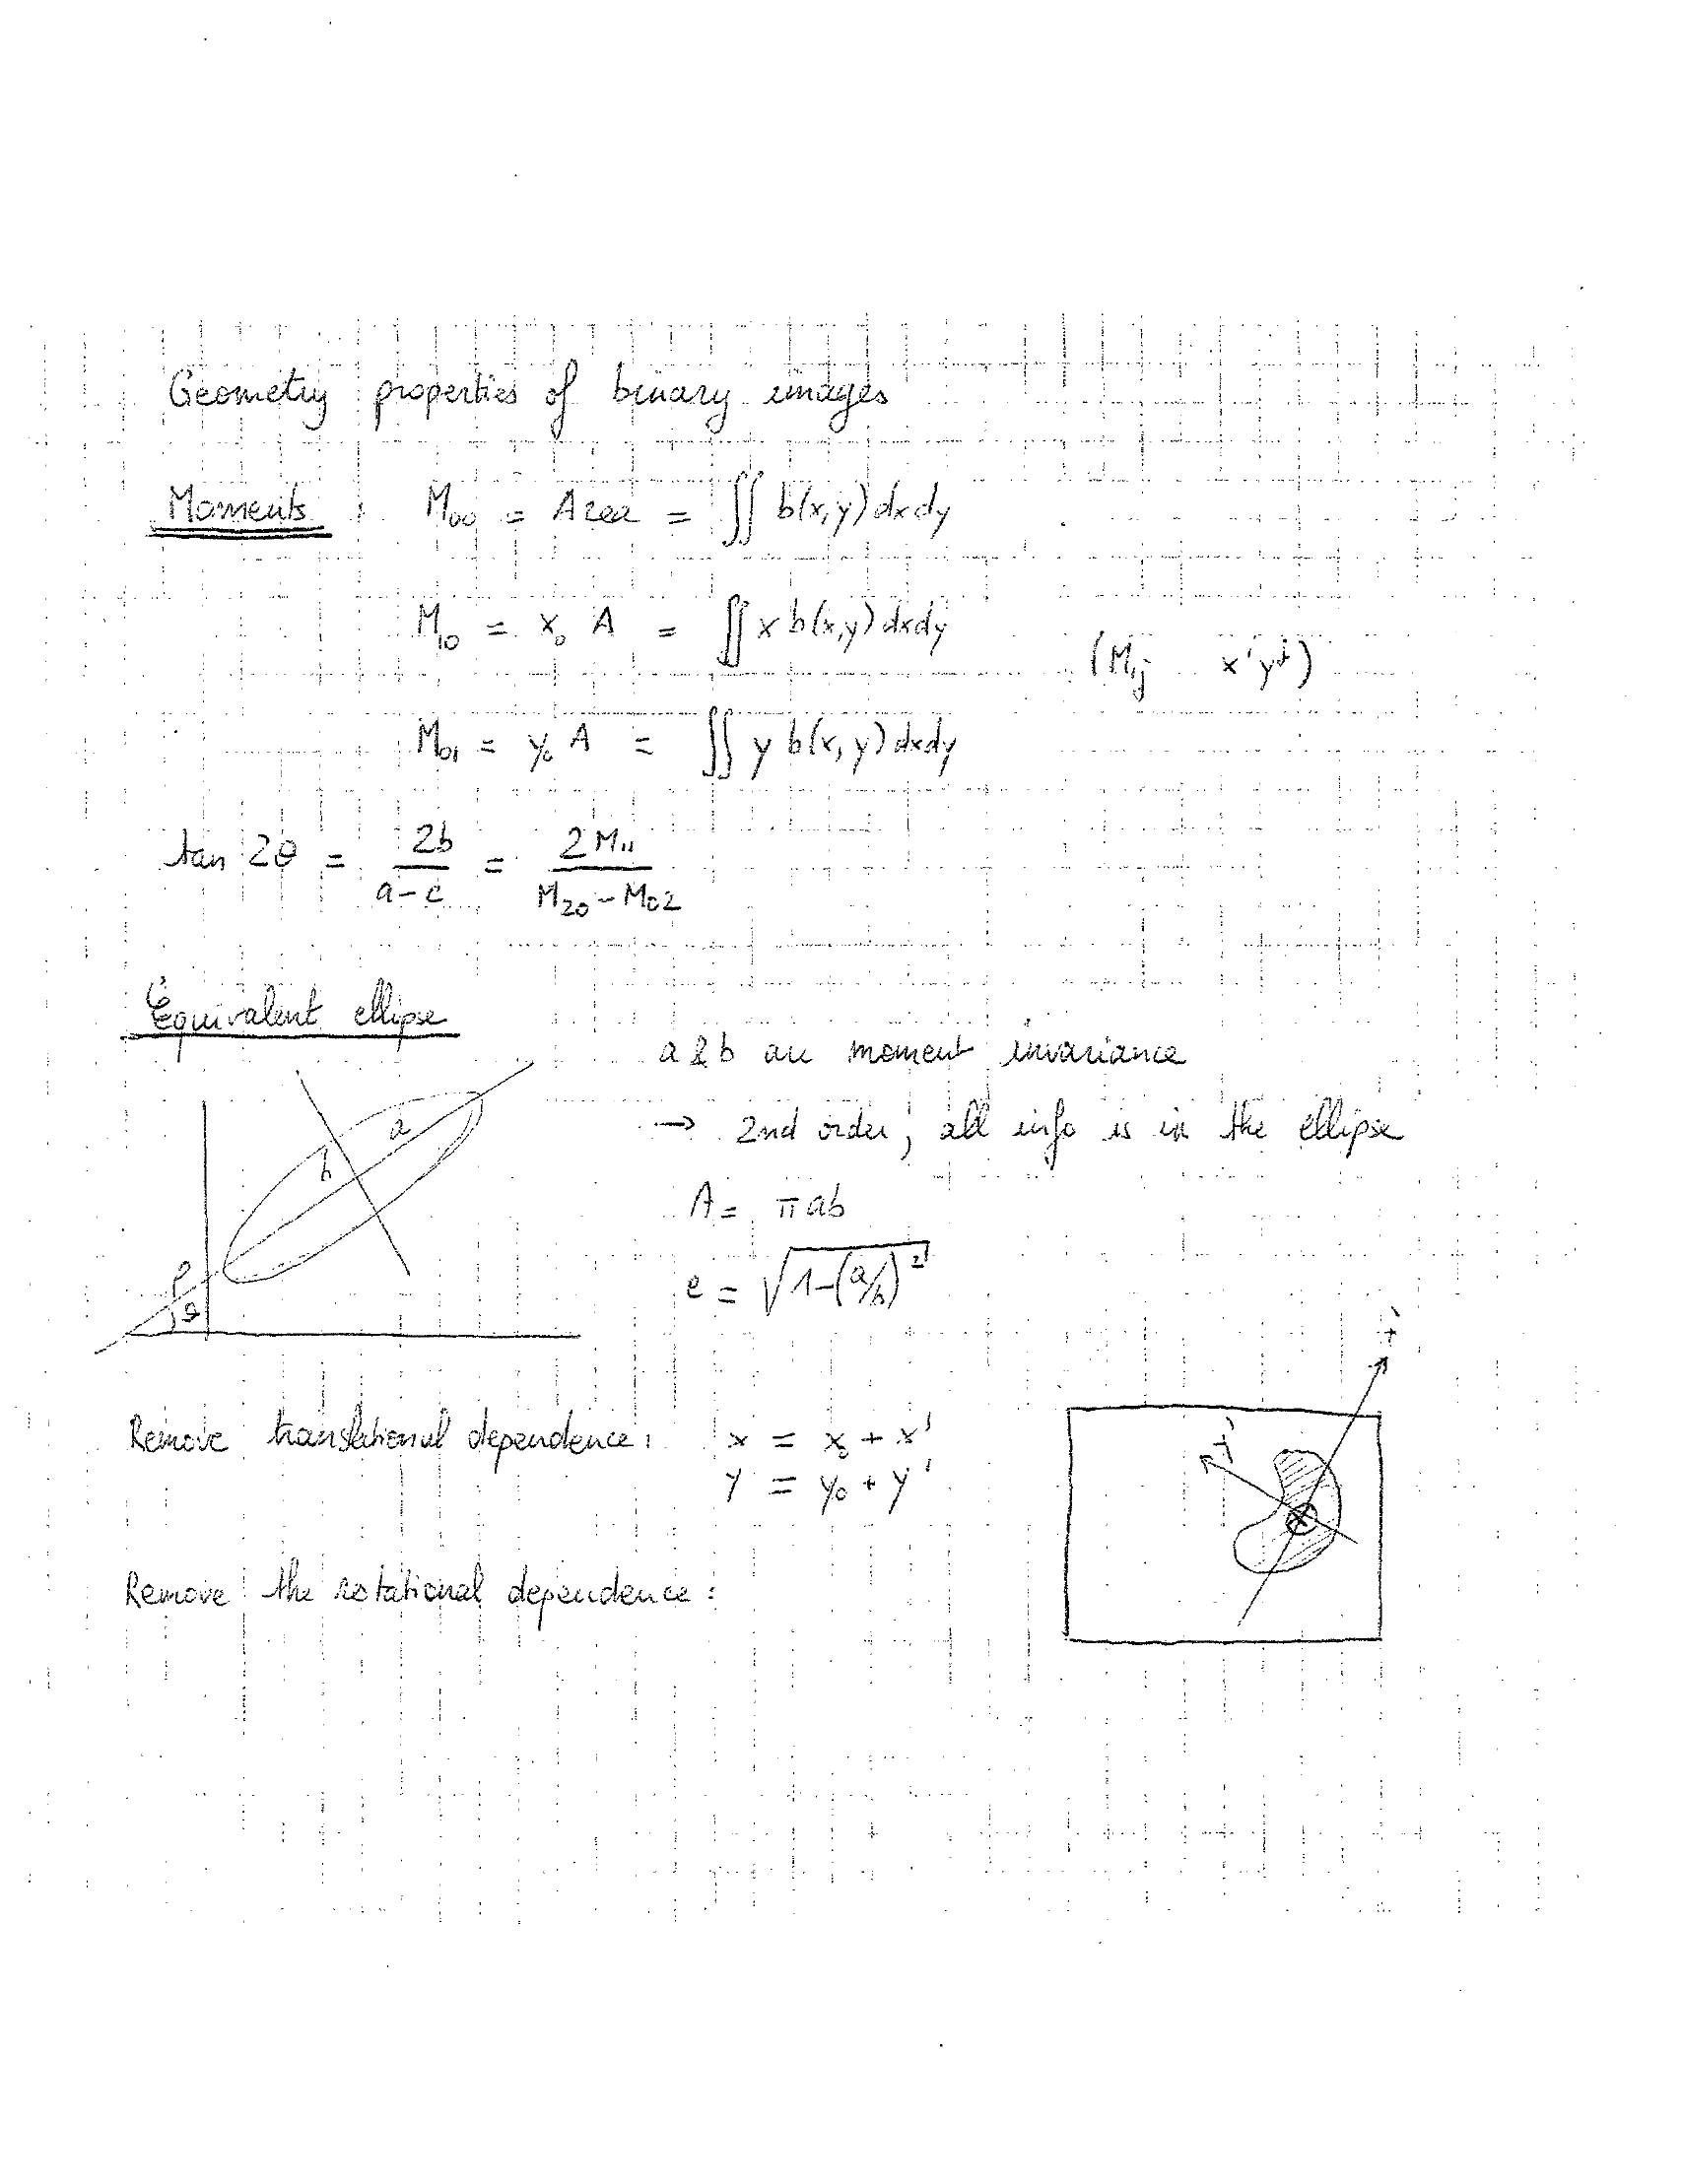 Geometry properties of binary images
Moments : M₀₀ = Area = ∬ b(x,y) dxdy
M₁₀ = x₀ A = ∬ x b(x,y) dxdy
(Mij xⁱyʲ)
M₀₁ = y₀ A = ∬ y b(x,y) dxdy
tan 2θ = 2b/(a-c) = 2M₁₁/(M₂₀-M₀₂)
Equivalent ellipse
a & b are moment invariance
→ 2nd order, all info is in the ellipse
a
b
A = πab
e = √(1-(a/b)²)
ρ
θ
x'
Remove translational dependence: x = x₀ + x'
y = y₀ + y'
y'
Remove the rotational dependence: